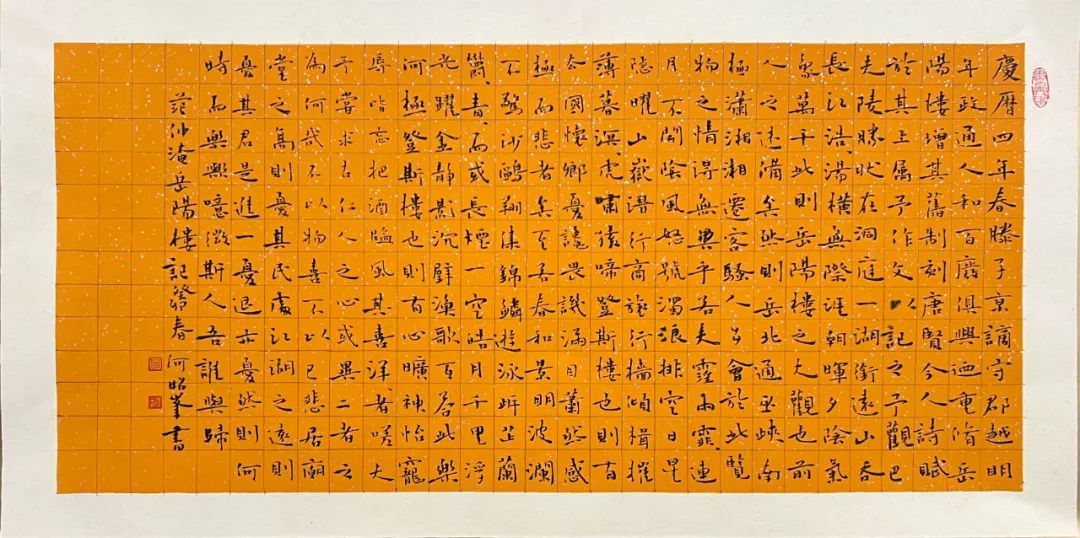 慶曆四年春滕子京謫守郡越明
年政通人和百廢俱興迺重脩岳
陽樓增其舊制刻唐賢今人詩賦
於其上属予作文以記之予觀巴
夫陵勝狀在洞庭一湖銜遠山吞
長江浩湯橫無際涯朝暉夕陰氣
象萬千此則岳陽樓之大觀也前
人之述備矣然則岳北通巫峽南
極瀟湘湘遷客騷人多會於此覽
物之情得無異乎若夫霪雨霏連
月不開陰風怒號濁浪排空日星
隱曜山嶽潛行商旅行檣傾楫摧
薄暮溟虎嘯猿啼登斯樓也則有
去國懷鄉憂讒畏譏滿目蕭然感
極而悲者矣至若春和景明波瀾
不驚沙鷗翔集錦鱗遊泳岸芷蘭
鬱〻青〻而或長煙一空皓月千里浮
光躍金靜影沉璧漁歌互答此樂
何極登斯樓也則有心曠神怡寵
辱皆忘把酒臨風其喜洋〻者嗟夫
予嘗求古仁人之心或異二者之
為何哉不以物喜不以己悲居廟
堂之高則憂其民處江湖之遠則
憂其君是進一憂退亦憂然則何
時而樂歟噫微斯人吾誰與歸
范仲淹岳陽樓記癸春何昭峯書